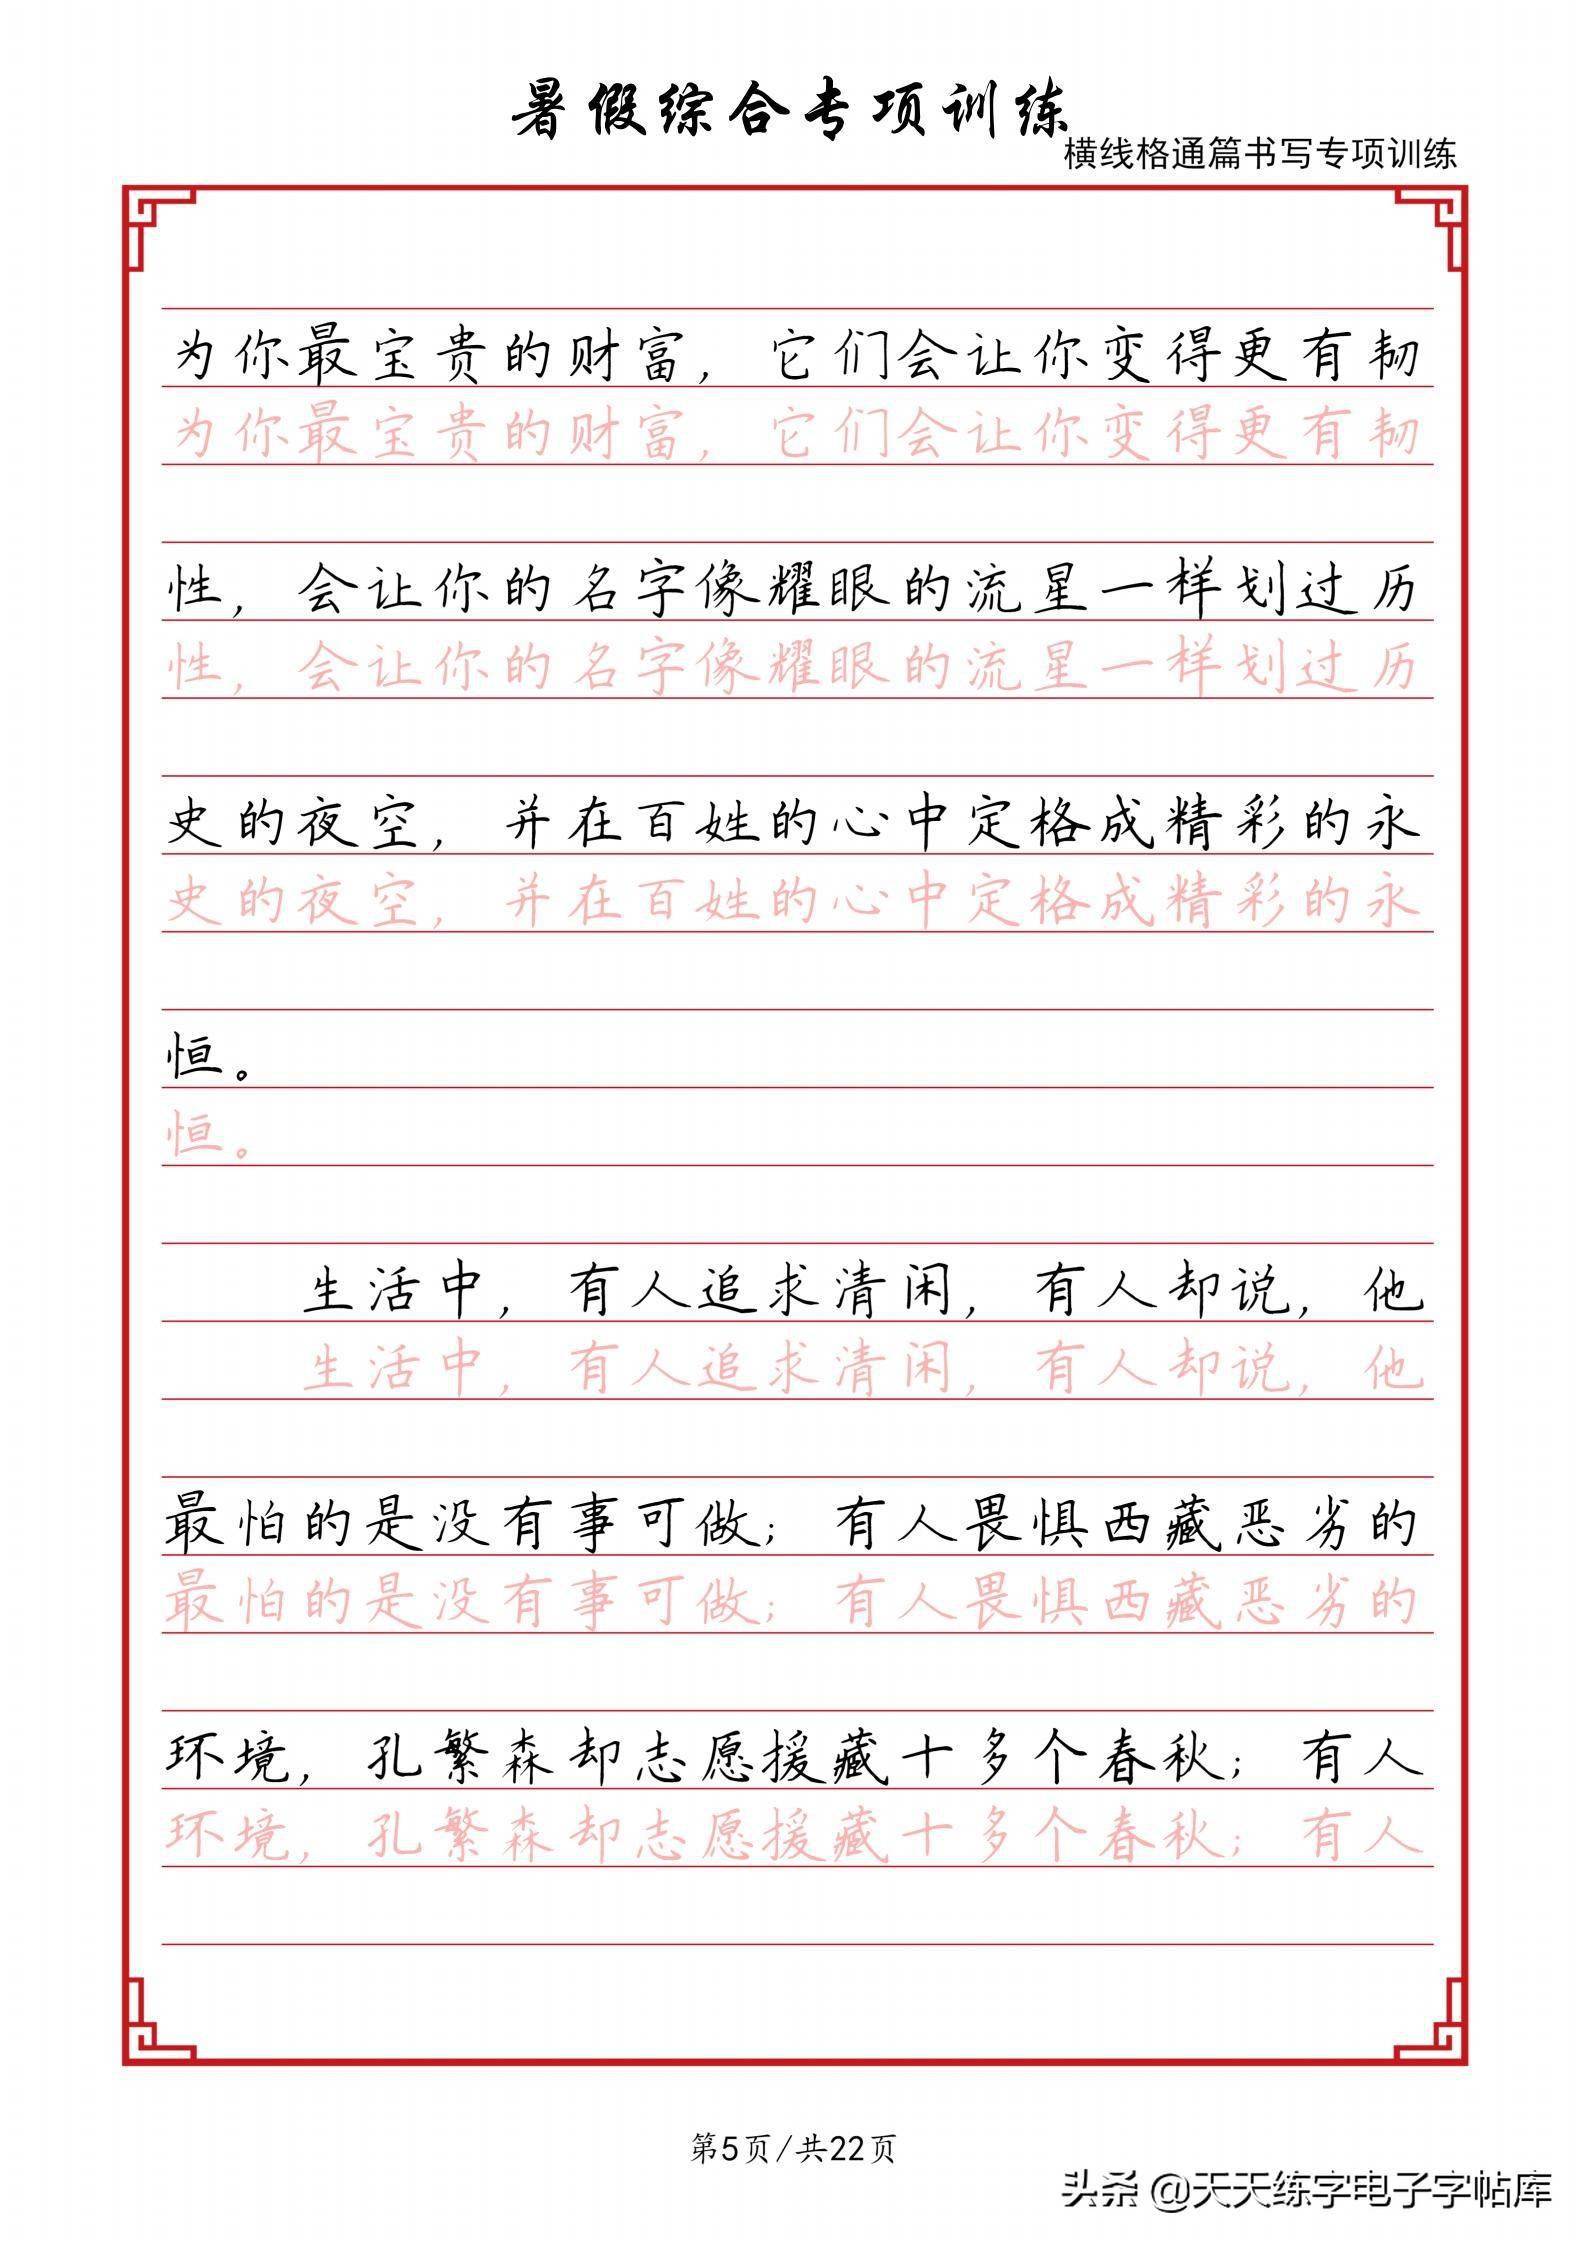 暑假综合专项训练
横线格通篇书写专项训练
为你最宝贵的财富，它们会让你变得更有韧
为你最宝贵的财富，它们会让你变得更有韧
性，会让你的名字像耀眼的流星一样划过历
性，会让你的名字像耀眼的流星一样划过历
史的夜空，并在百姓的心中定格成精彩的永
史的夜空，并在百姓的心中定格成精彩的永
恒。
恒。
生活中，有人追求清闲，有人却说，他
生活中，有人追求清闲，有人却说，他
最怕的是没有事可做；有人畏惧西藏恶劣的
最怕的是没有事可做；有人畏惧西藏恶劣的
环境，孔繁森却志愿援藏十多个春秋；有人
环境，孔繁森却志愿援藏十多个春秋；有人
第5页/共22页
头条 @天天练字电子字帖库